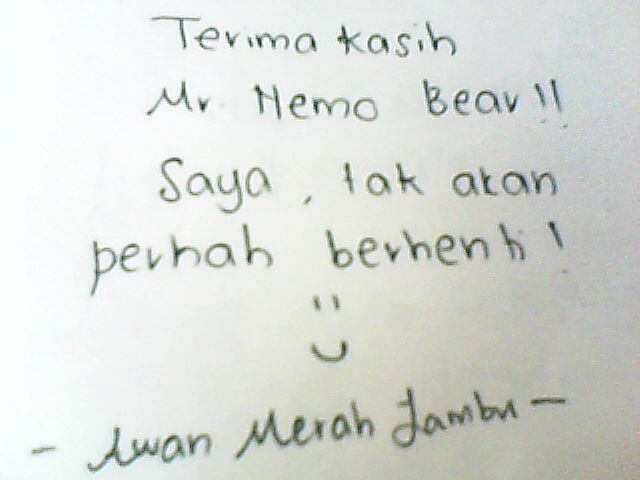 Terima kasih
Mr. Nemo Bear!!
Saya, tak akan
pernah berhenti!
- Awan Merah Jambu -